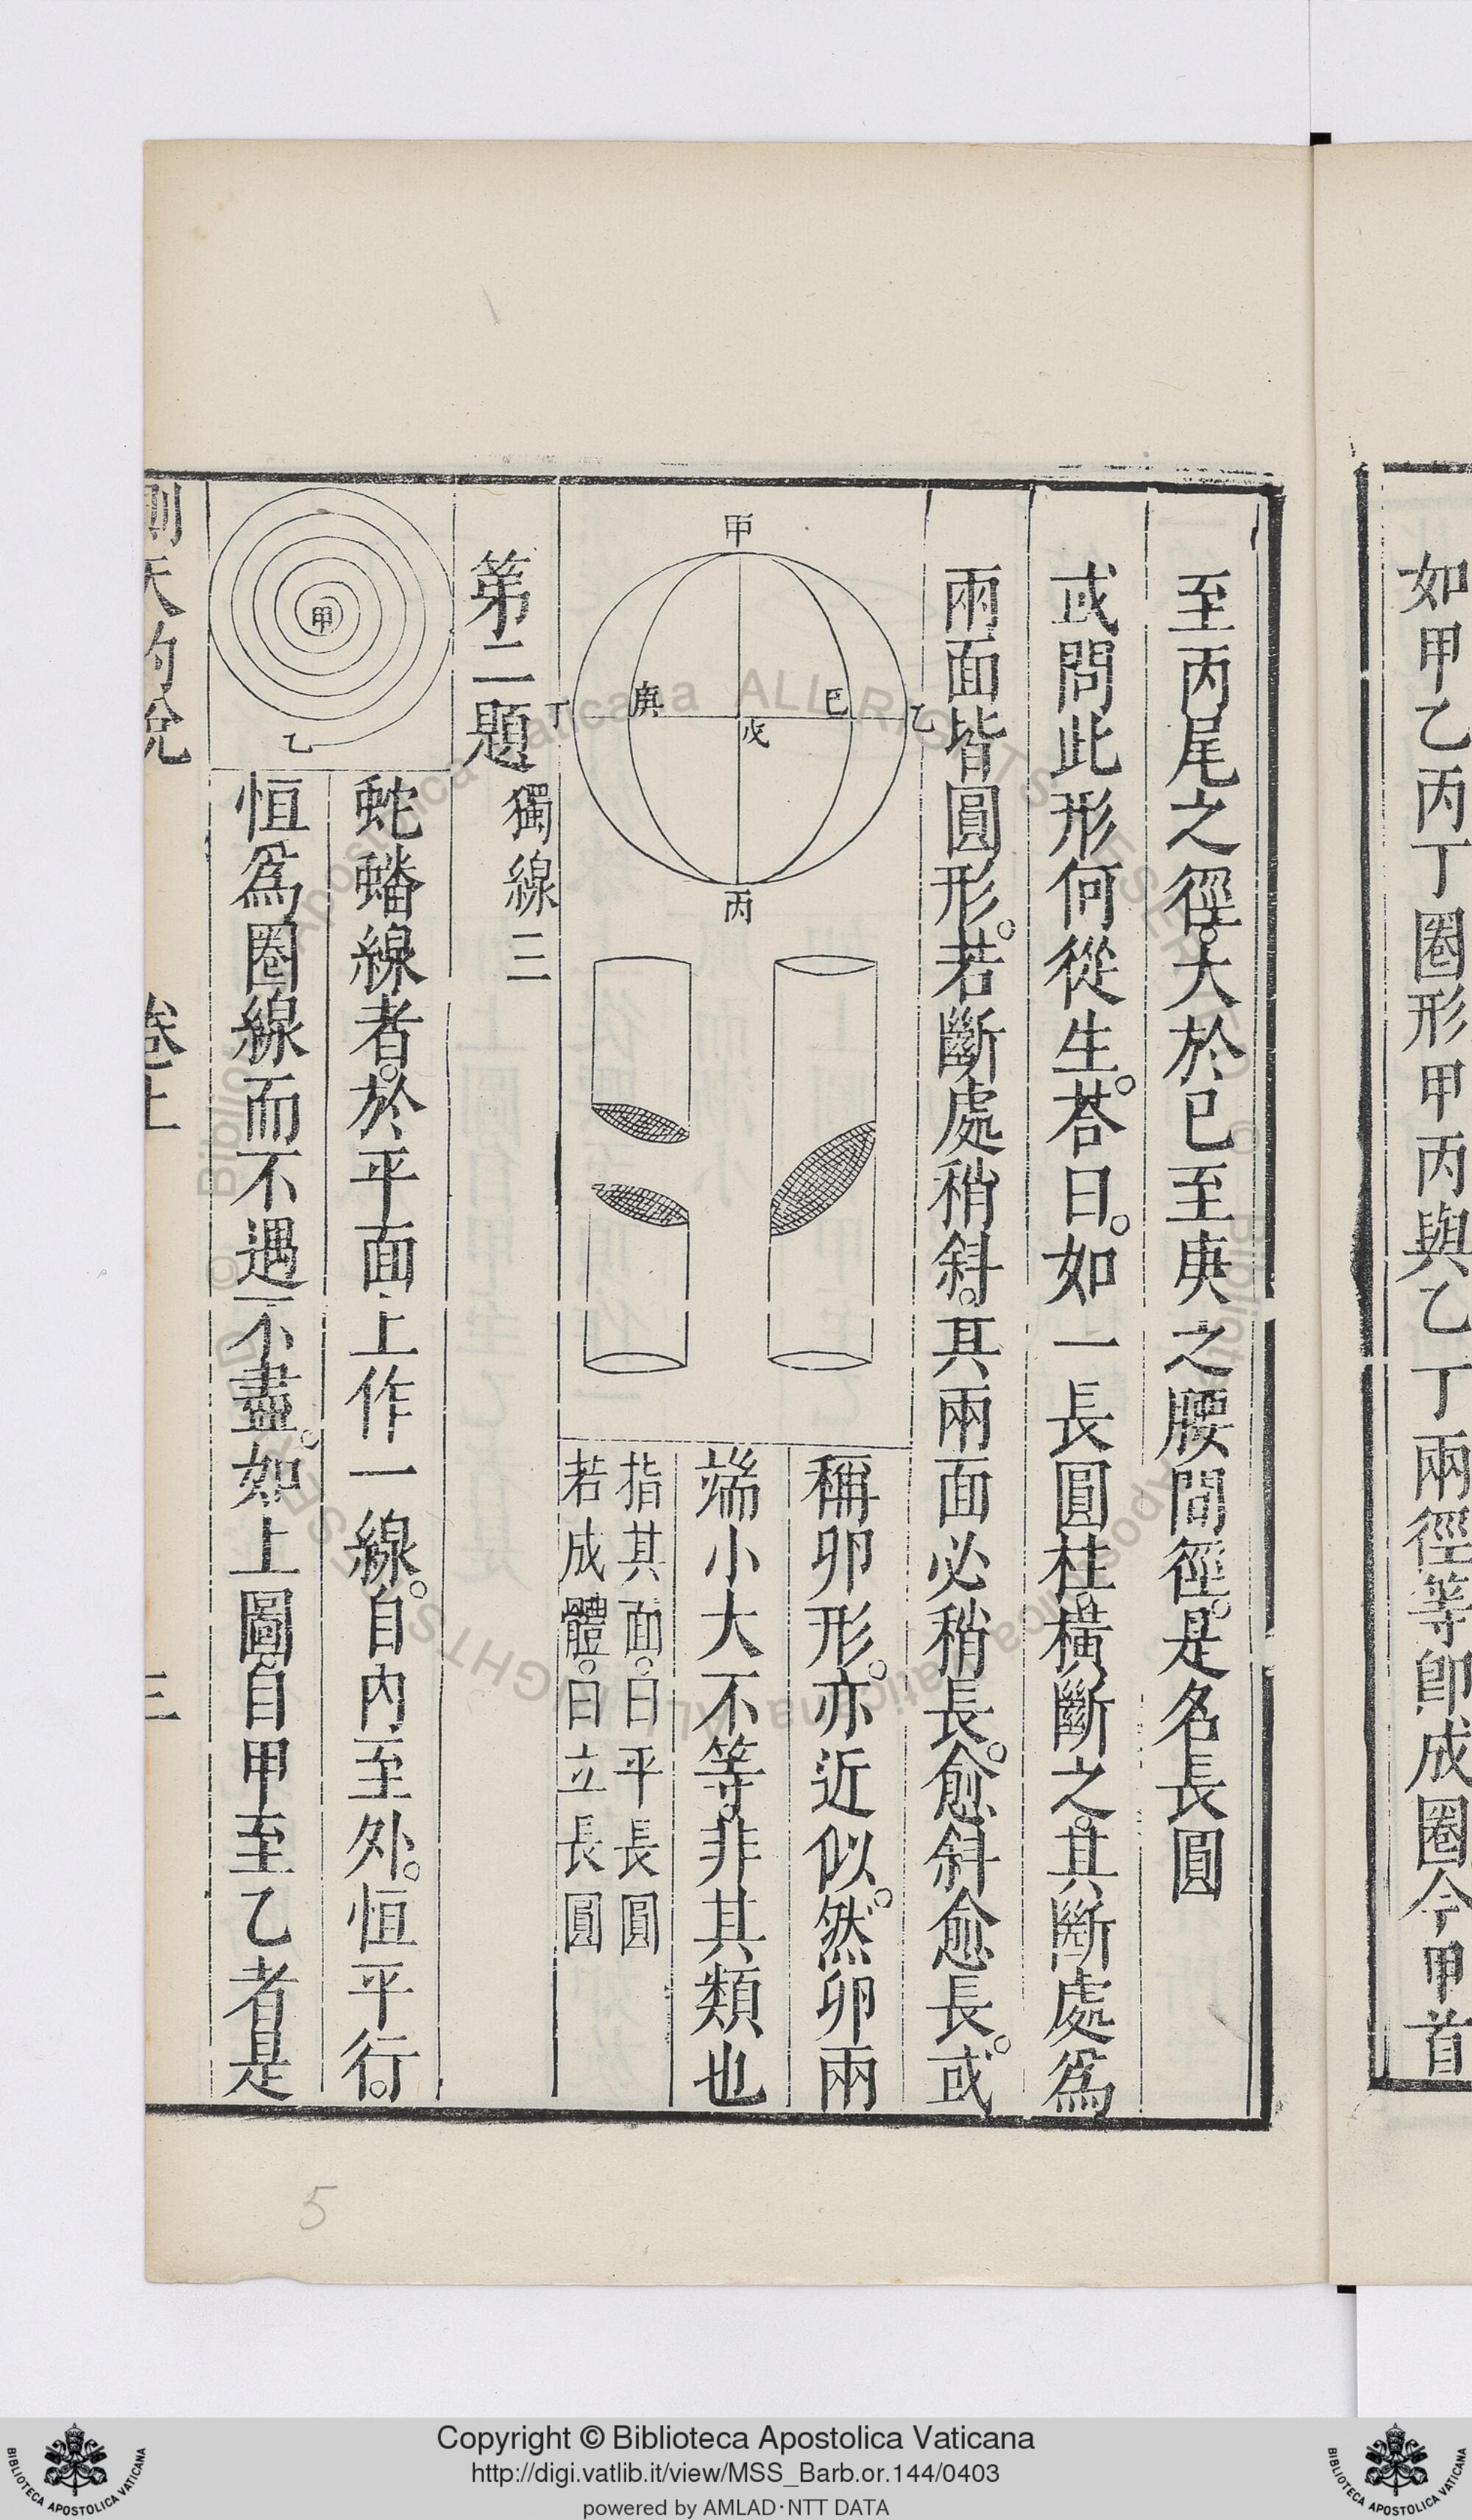 如甲乙丙丁圈形甲丙與乙丁兩徑等卽成圈今甲首
至丙尾之徑。大於己至庚之腰間徑。是名長圓
或問此形何從生。荅曰。如一長圓柱。橫斷之。其斷處爲
兩面皆圓形。若斷處稍斜。其兩面必稍長。愈斜愈長。或
稱卵形。亦近似。然卵兩
端小大不等。非其類也
指其面。曰平長圓
若成體。曰立長圓
甲
乙
丙
丁
戊
己
庚
第二題
獨線三
蛇蟠線者。於平面上作一線。自內至外。恒平行。
恒爲圈線而不遇不盡。如上圖。自甲至乙者是
甲
乙
測天約說
卷上
三
5
Copyright © Biblioteca Apostolica Vaticana
http://digi.vatlib.it/view/MSS_Barb.or.144/0403
powered by AMLAD·NTT DATA
BIBLIOTECA APOSTOLICA VATICANA
BIBLIOTECA APOSTOLICA VATICANA